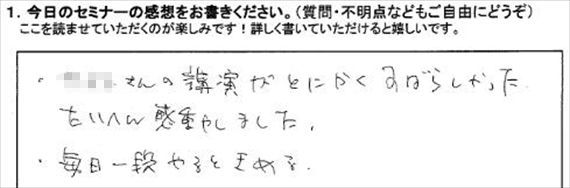 1. 今日のセミナーの感想をお書きください。(質問・不明点などもご自由にどうぞ)
ここを読ませていただくのが楽しみです！詳しく書いていただけると嬉しいです。
・ さんの講演がとにかくすばらしかった
たいへん感動しました。
・毎日一段やるときめる.